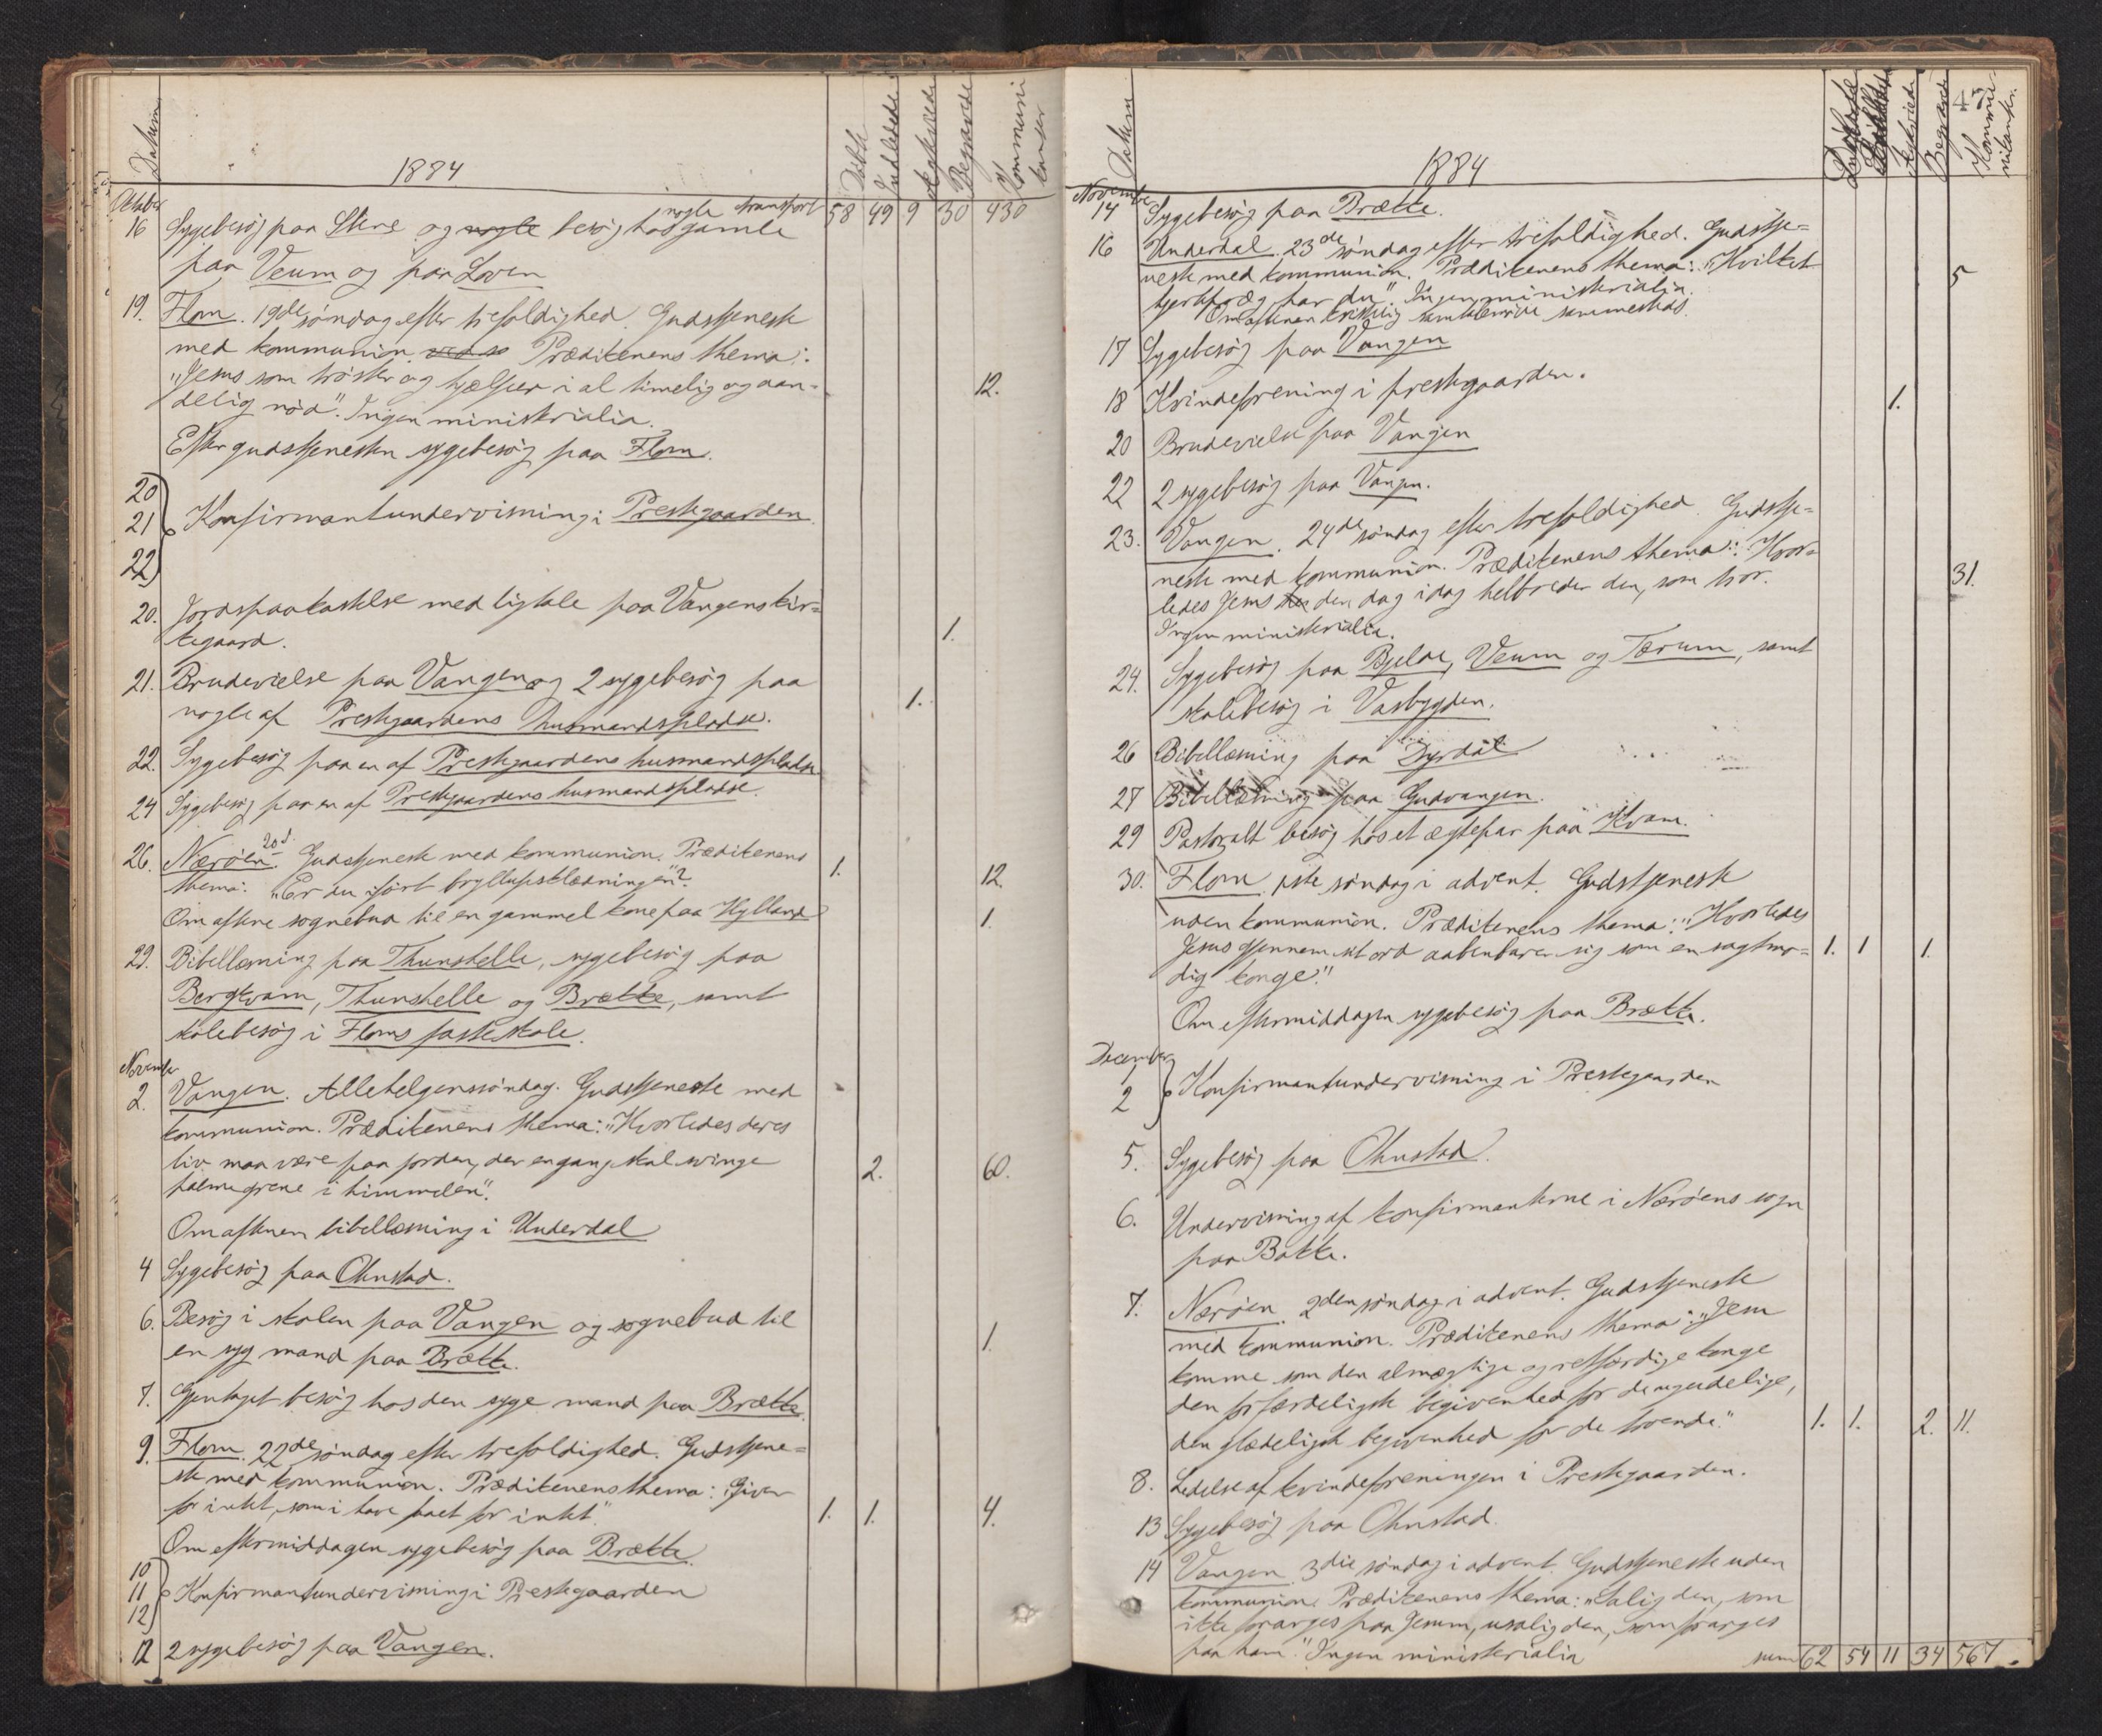 Datum
1884
Döbte
Indledede
Ægteviede
Begravede
Kommunikanter
transport 58 49 9 30 430
Oktober
16 Sygebesög paa Stene og nogle besög hos nogle gamle
paa Veum og paa Loven
19. Flom. 19de söndag efter trefoldighed. Gudstjeneste
med kommunion. Prædikenens thema:
"Jesus som tröster og hjælper i al timelig og aan-
delig nöd". Ingen ministerialia. 12.
Efter gudstjenesten sygebesög paa Flom.
20
21 Konfirmantundervisning i Prestegaarden.
22
20. Jordspaakastelse med ligtale paa Vangens kir-
kegaard. 1.
21. Brudevielse paa Vangen og 2 sygebesög paa
nogle af Prestegaardens husmandspladse. 1.
22. Sygebesög paa en af Prestegaardens husmandspladse.
24 Sygebesög paa en af Prestegaardens husmandspladse.
26. Næröen 20d. Gudstjeneste med kommunion. Prædikenens
thema: "Er du iført bryllupsklædningen"? 1. 12.
Om aftene sognebud til en gammel kone paa Hylland 1.
29. Bibellæsning paa Thunshelle, sygebesög paa
Bergkvam, Thunshelle og Brække, samt
skolebesög i Floms fasteskole.
November
2. Vangen. Allehelgenssöndag. Gudstjeneste med
kommunion. Prædikenens thema: "Hvorledes deres
liv maa være paa jorden, der engang skal svinge
palmegrene i himmelen". 2. 60.
Om aftenen bibellæsning i Underdal
4 Sygebesög paa Ohnstad.
6. Besög i skolen paa Vangen og sognebud til
en syg mand paa Brække. 1.
7. Gjentaget besög hos den syge mand paa Brække.
9. Flom. 22de söndag efter trefoldighed. Gudstjene-
ste med kommunion. Prædikenens thema: "Giver
for intet, som i have faaet for intet." 1. 1. 4.
Om eftermiddagen sygebesög paa Brække.
10
11 Konfirmantundervisning i Prestegaarden
12
12 2 sygebesög paa Vangen.
47
Datum
1884
Döbte
Indledede
Ægteviede
Begravede
Kommunikanter.
November
14 Sygebesög paa Brække.
16 Underdal. 23de söndag efter trefoldighed. Gudstje-
neste med kommunion. Prædikenens thema: "Hvilket 5
hjertepræg har du". Ingen ministerialia.
Om aftenen kristelig samtalemöde sammesteds.
17 Sygebesög paa Vangen
18 Kvindeforening i prestegaarden.
20 Brudevielse paa Vangen 1.
22 2 sygebesög paa Vangen.
23. Vangen. 24de söndag efter trefoldighed. Gudstje-
neste med kommunion. Prædikenens thema: "Hvor-
ledes Jesus den dag idag helbreder den, som tror. 31.
Ingen ministerialia.
24. Sygebesög paa Bjelde, Veum og Tærum, samt
skolebesög i Vasbygden.
26 Bibellæsning paa Dyrdal
27 Bibellæsning paa Gudvangen.
29 Pastoralt besög hos et ægtepar paa Kvam.
30. Flom. 1ste söndag i advent. Gudstjeneste
uden kommunion. Prædikenens thema: "Hvorledes
Jesus gjennem sit ord aabenbarer sig som en sagtmo- 1. 1 1.
dig konge".
Om eftermiddagen sygebesög paa Brække.
December
1
2 Konfirmantundervisning i Prestegaarden
5. Sygebesög paa Ohnstad.
6. Undervisning af konfirmanterne i Næröens sogn
paa Bakke.
7. Næröen. 2den söndag i advent. Gudstjeneste
med kommunion. Prædikenens thema: "Jesu
komme som den almægtige og retfærdige konge
den forfærdeligste begivenhed for de ugudelige,
den glædeligste begivenhed for de troende." 1. 1. 2. 11.
8. Ledelse af kvindeforeningen i Prestegaarden.
13 Sygebesög paa Ohnstad.
14 Vangen. 3die söndag i advent. Gudstjeneste uden
kommunion. Prædikenens thema: "Salig den, som
ikke forarges paa Jesum, usalig den, som forarges
paa ham." Ingen ministerialia
sum 62 54 11 34 567